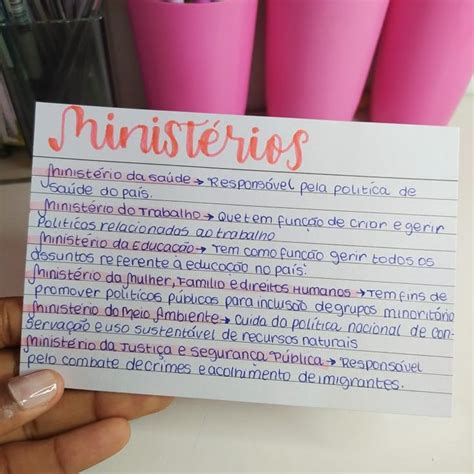 Ministérios
Ministério da saúde → Responsável pela politica de
saúde do país.
Ministério do Trabalho → Que tem função de criar e gerir
Políticas relacionadas ao trabalho
Ministério da Educação → Tem como função gerir todos os
assuntos referente à educação no país.
Ministério da Mulher, Família e direitos Humanos → Tem fins de
promover políticas públicas para inclusão de grupos minoritário
Ministério do Meio Ambiente → Cuida da política nacional de con-
servação e uso sustentável de recursos naturais
Ministério da Justiça e segurança Pública → Responsável
pelo combate de crimes e acolhimento de imigrantes.